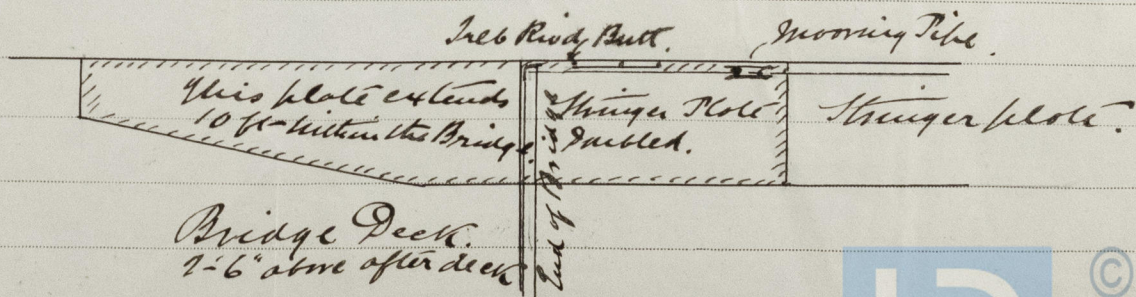 Treb Rivd Butt.
Mooring Pipe.
This plate extends
10 ft within the Bridge.
Stringer Plate
Doubled.
Stringer plate.
End of Bridge
Bridge Deck.
7'-6" above after deck
©